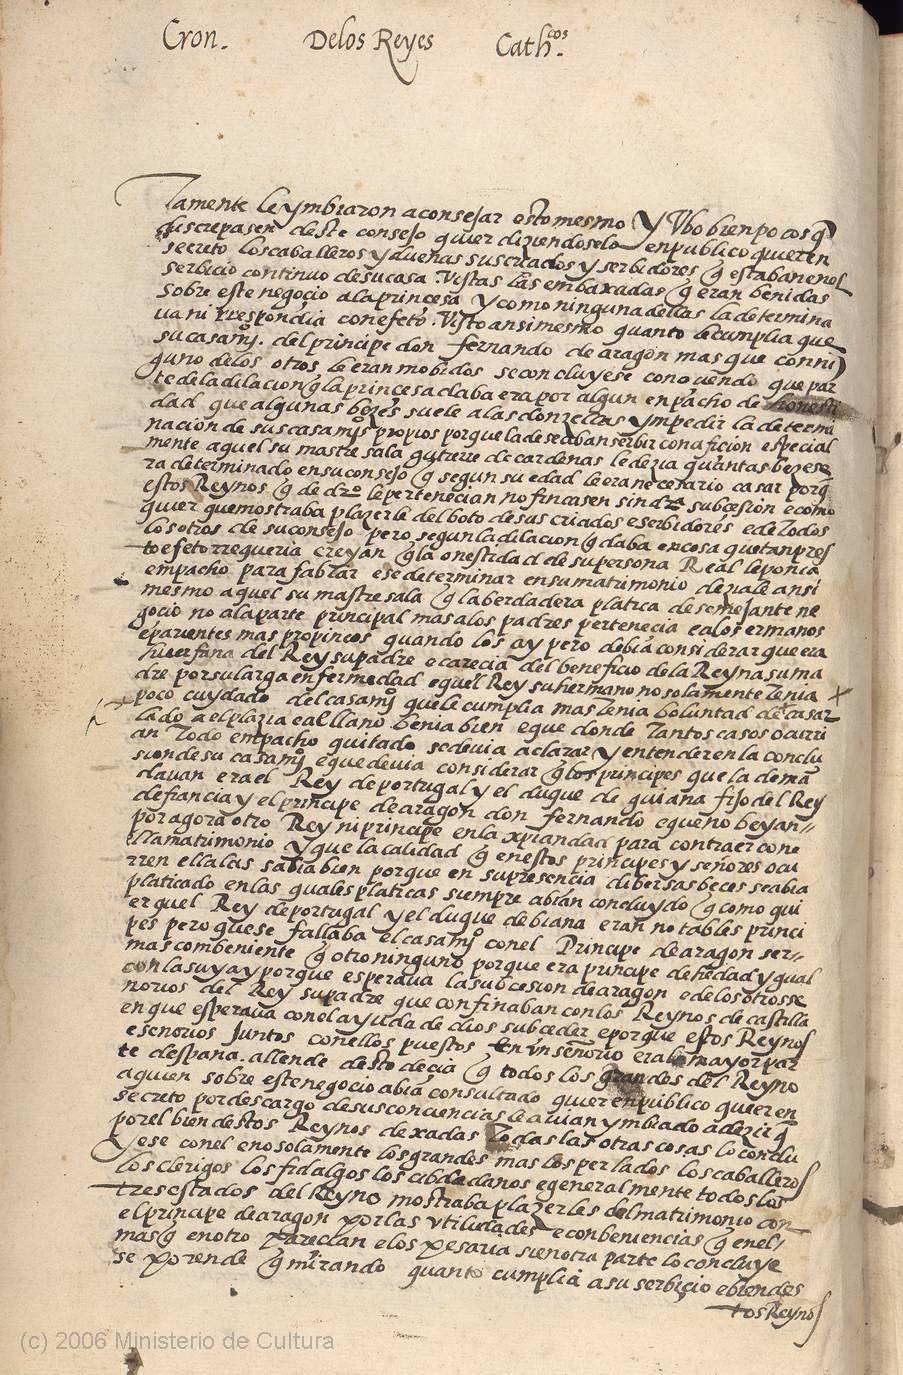 Cron. Delos Reyes Cath.cos
tamente le ymbiaron aconsejar esto mesmo y Vbo bien pocos q̃
discrepasen deste consejo quier diziendoselo enpublico quier en
secreto los caballeros y dueñas sus criados y serbidores q̃ estaban enel
serbicio continuo desu casa. Vistas las embaxadas q̃ eran benidas
sobre este negocio ala princesa y como ninguna dellas la determina
ua ni rrespondia con efeto. Visto ansimesmo quanto le cumplia que
su casamj.º del principe don fernando de aragon mas que con nin
guno delos otros le eran mobidos se concluyese conoçiendo que par
te dela dilacion q̃ la princesa daba era por algun enpacho de honesti
dad que algunas bezes suele alas donzellas ympedir la determi
nacion de sus casamjºs propios porque la deseaban serbir con aficion especial
mente aquel su mastre sala gutierre de cardenas le dezia quantas bezes e
ra determinado en su consejo q̃ segun su edad le era necesario casar porq̃
estos Reynos q̃ de drº le pertenecian no fincasen sin drª subcesion e como
quier que mostraba plazerle del boto de sus criados e serbidores e de todos
los otros de su consejo pero segun la dilacion q̃ daba en cosa que tan pres
to efeto rrequeria creyan q̃ la onestidad de su persona Real le ponia
empacho para fablar e se determinar en su matrimonio deziale ansi
mesmo aquel su mastre sala q̃ la berdadera platica de semejante ne
gocio no ala parte principal mas alos padres pertenecia e alos ermanos
e parientes mas propincos quando los ay pero debia considerar que era
huerfana del Rey su padre e carecia del beneficio dela Reyna su ma
dre por su larga enfermedad e quel Rey su hermano no solamente tenia
poco cuydado del casamjº que le cumplia mas tenia boluntad de casar
la do a el plazia e a ella no benia bien e que donde tantos casos ocurri
an todo empacho quitado se devia aclarar y entender en la conclu
sion de su casamjº e que devia considerar q̃ los principes que la demã
dauan era el Rey de portugal y el duque de guiana fijo del Rey
de francia y el principe de aragon don fernando e que no beyan
por agora otro Rey ni principe en la xpiandad para contraer con e
lla matrimonio y que la calidad q̃ en estos principes y señores ocu
rren ella las sabia bien porque en su presencia dibersas beces se abia
platicado en las quales platicas siempre abian concluydo q̃ como qui
er quel Rey de portugal y el duque de biana eran notables princi
pes pero que se fallaba el casamjº con el Principe de aragon ser
mas combeniente q̃ otro ninguno porque era principe de hedad ygual
con la suya y porque esperaua la subcesion de aragon e delos otros se
norios del Rey su padre que confinaban con los Reynos de castilla
en que esperaua con el ayuda de dios subceder e porque estos Reynos
e senorios Juntos con ellos puestos En vn señorio era la mayor par
te despana. allende desto decia q̃ todos los grandes del Reyno
a quien sobre este negocio abia consultado quier en publico quier en
secreto por descargo de sus conciencias le auian ymbiado a dezir q̃
por el bien destos Reynos dexadas todas las otras cosas lo conclu
yese con el e no solamente los grandes mas los perlados los caballeros
los clerigos los fidalgos los cibdadanos e generalmente todos los
tres estados del Reyno mostraba plazerles del matrimonio con
el principe de aragon por las vtilidades e conbeniencias q̃ en el
mas q̃ en otro parecian e los pesaria si en otra parte lo concluye
se por ende q̃ mirando quanto cumplia a su serbicio e bien des
tos Reynos
(c) 2006 Ministerio de Cultura